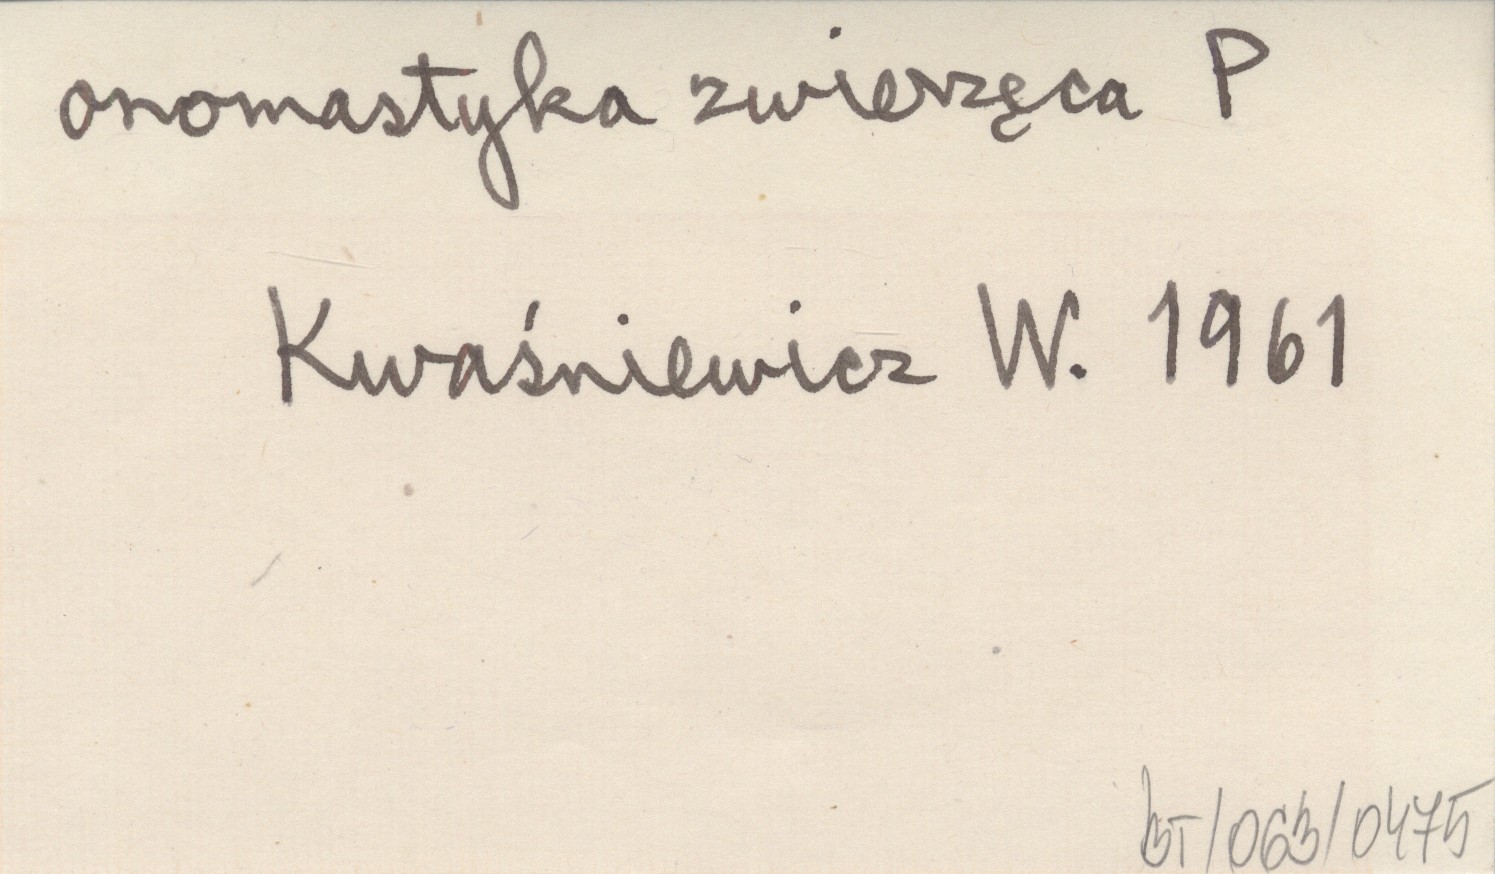 onomastyka zwierzęca P
Kwaśniewicz W. 1961
BT/063/0475